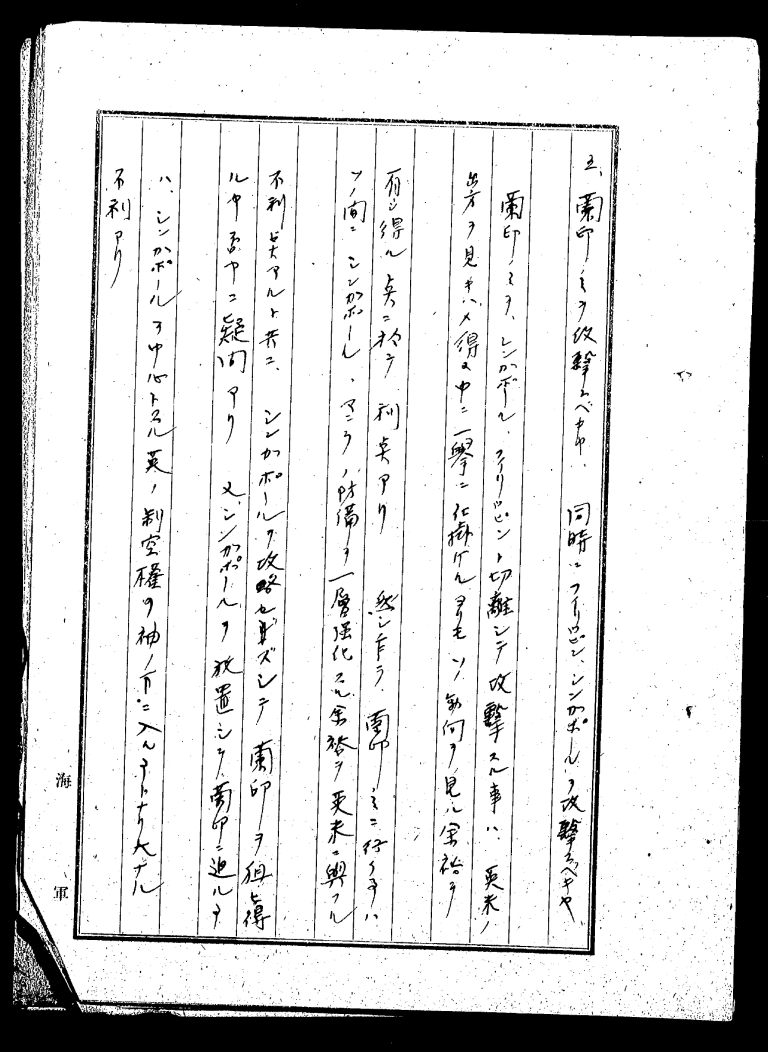 五、蘭印ノミヲ攻撃スベキカ、同時ニフイリツピン、シンガポールヲ攻撃スベキヤ
蘭印ノミヲ、シンガポール、フイリツピント切離シテ攻撃スル事ハ、英米ノ
出方ヲ見キハメ得ヌ中ニ一擧ニ仕掛ケルヨリモソノ動向ヲ見ル余裕ヲ
有シ得ル点ニ於テ利点アリ 然シ乍ラ、蘭印ノミニ行ク事ハ
ソノ間ニシンガポール、マニラノ防備ヲ一層强化スル余裕ヲ英米ニ與フル
不利点アルト共ニ、シンガポールヲ攻略セズシテ蘭印ヲ狙ヒ得
ルヤ否ヤニ疑問アリ 又、シンガポールヲ放置シテ、蘭印ニ迫ルヲ
ハ、シンガポールヲ中心トスル英ノ制空權ノ袖ノ下ニ入ルコトナリ大ナル
不利アリ
海軍